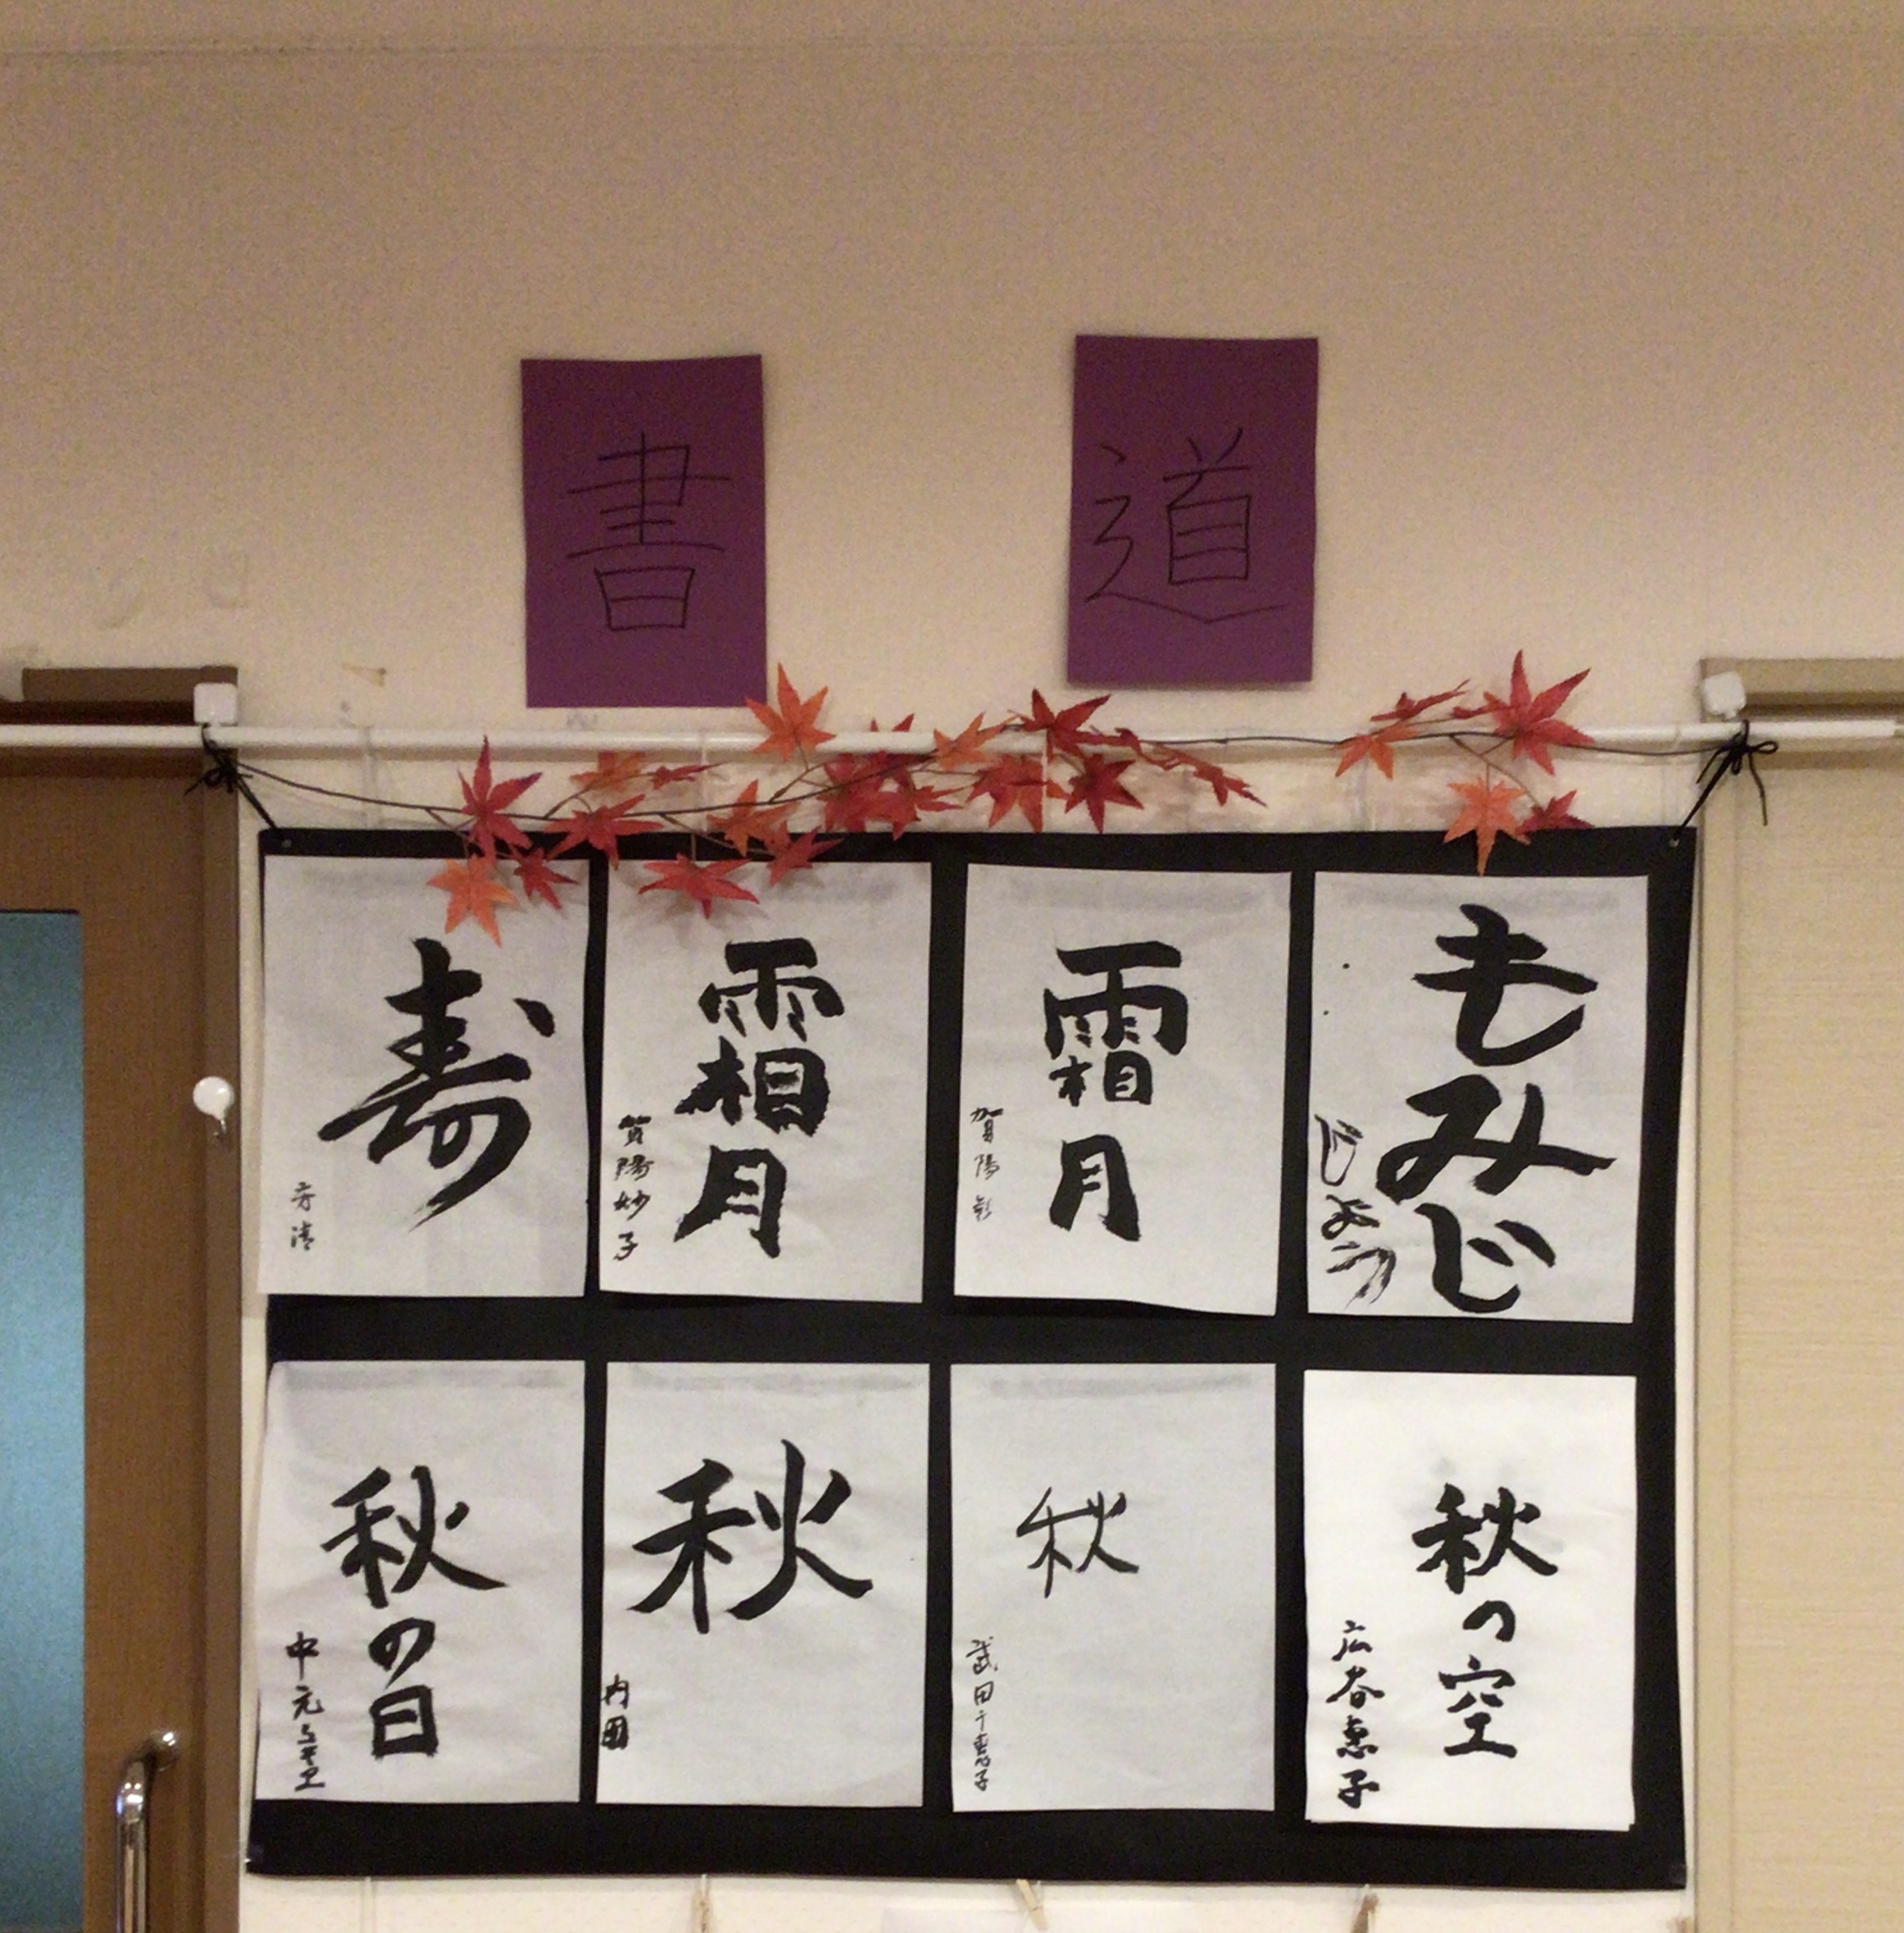 書道
もみじ
じょう
霜月
賀陽
霜月
賀陽妙子
寿
秋の空
広谷恵子
秋
武田千恵子
秋
内田
秋の日
中元